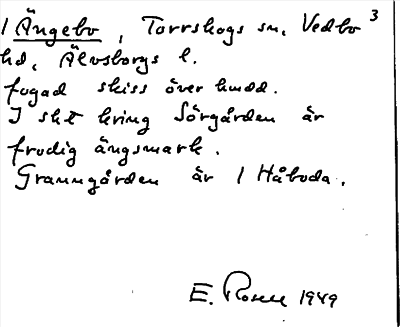 1 Ängebo, Torrskogs sn, Vedbo 3
hd, Älvsborgs l.
fogad skiss över hudd.
I skt kring Sörgården är
frodig ängsmark.
Granngården är 1 Håbuda.
E. Rosell 1949